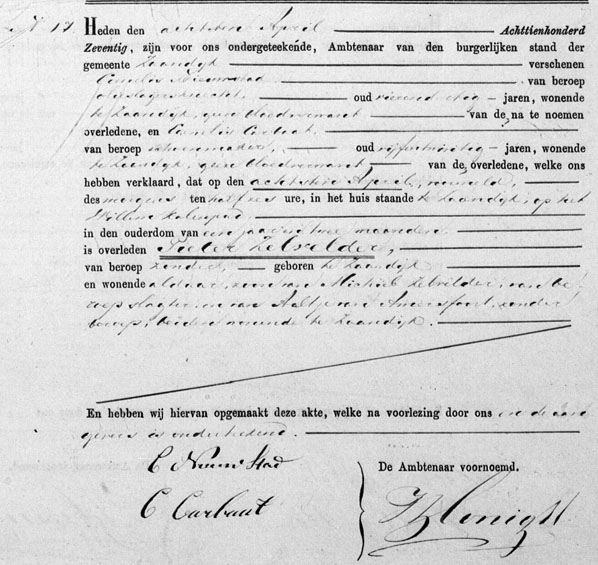 Heden den achttiende April Achttienhonderd
Zeventig, zijn voor ons ondergeteekende, Ambtenaar van den burgerlijken stand der
gemeente Zaandijk verschenen
Cornelis Nieuwstad van beroep
oud jaren, wonende
te Zaandijk, van de na te noemen
overledene, en Cornelis Carbaat
van beroep oud jaren, wonende
te Zaandijk, van de overledene, welke ons
hebben verklaard, dat op den achttiende April,
des morgens ten half ure, in het huis staande te Zaandijk, op het
Willem
in den ouderdom van een jaar en twee maanden
is overleden Zetvelder,
van beroep zonder, geboren te Zaandijk
en wonende aldaar, zoon van Michiel Zetvelder, van be
roep slagter, en van Aaltje van Amersfoort, zonder
beroep, beiden wonende te Zaandijk.
En hebben wij hiervan opgemaakt deze akte, welke na voorlezing door ons en de aan
gevers is onderteekend.
C Nieuwstad
De Ambtenaar voornoemd.
C Carbaat